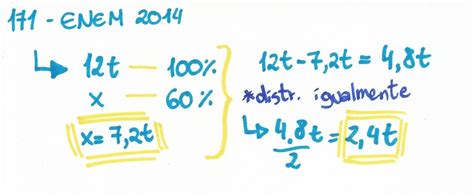 171 - ENEM 2014
12t — 100%
x — 60%
x = 7,2t
12t - 7,2t = 4,8t
*distr. igualmente
4,8t/2 = 2,4t